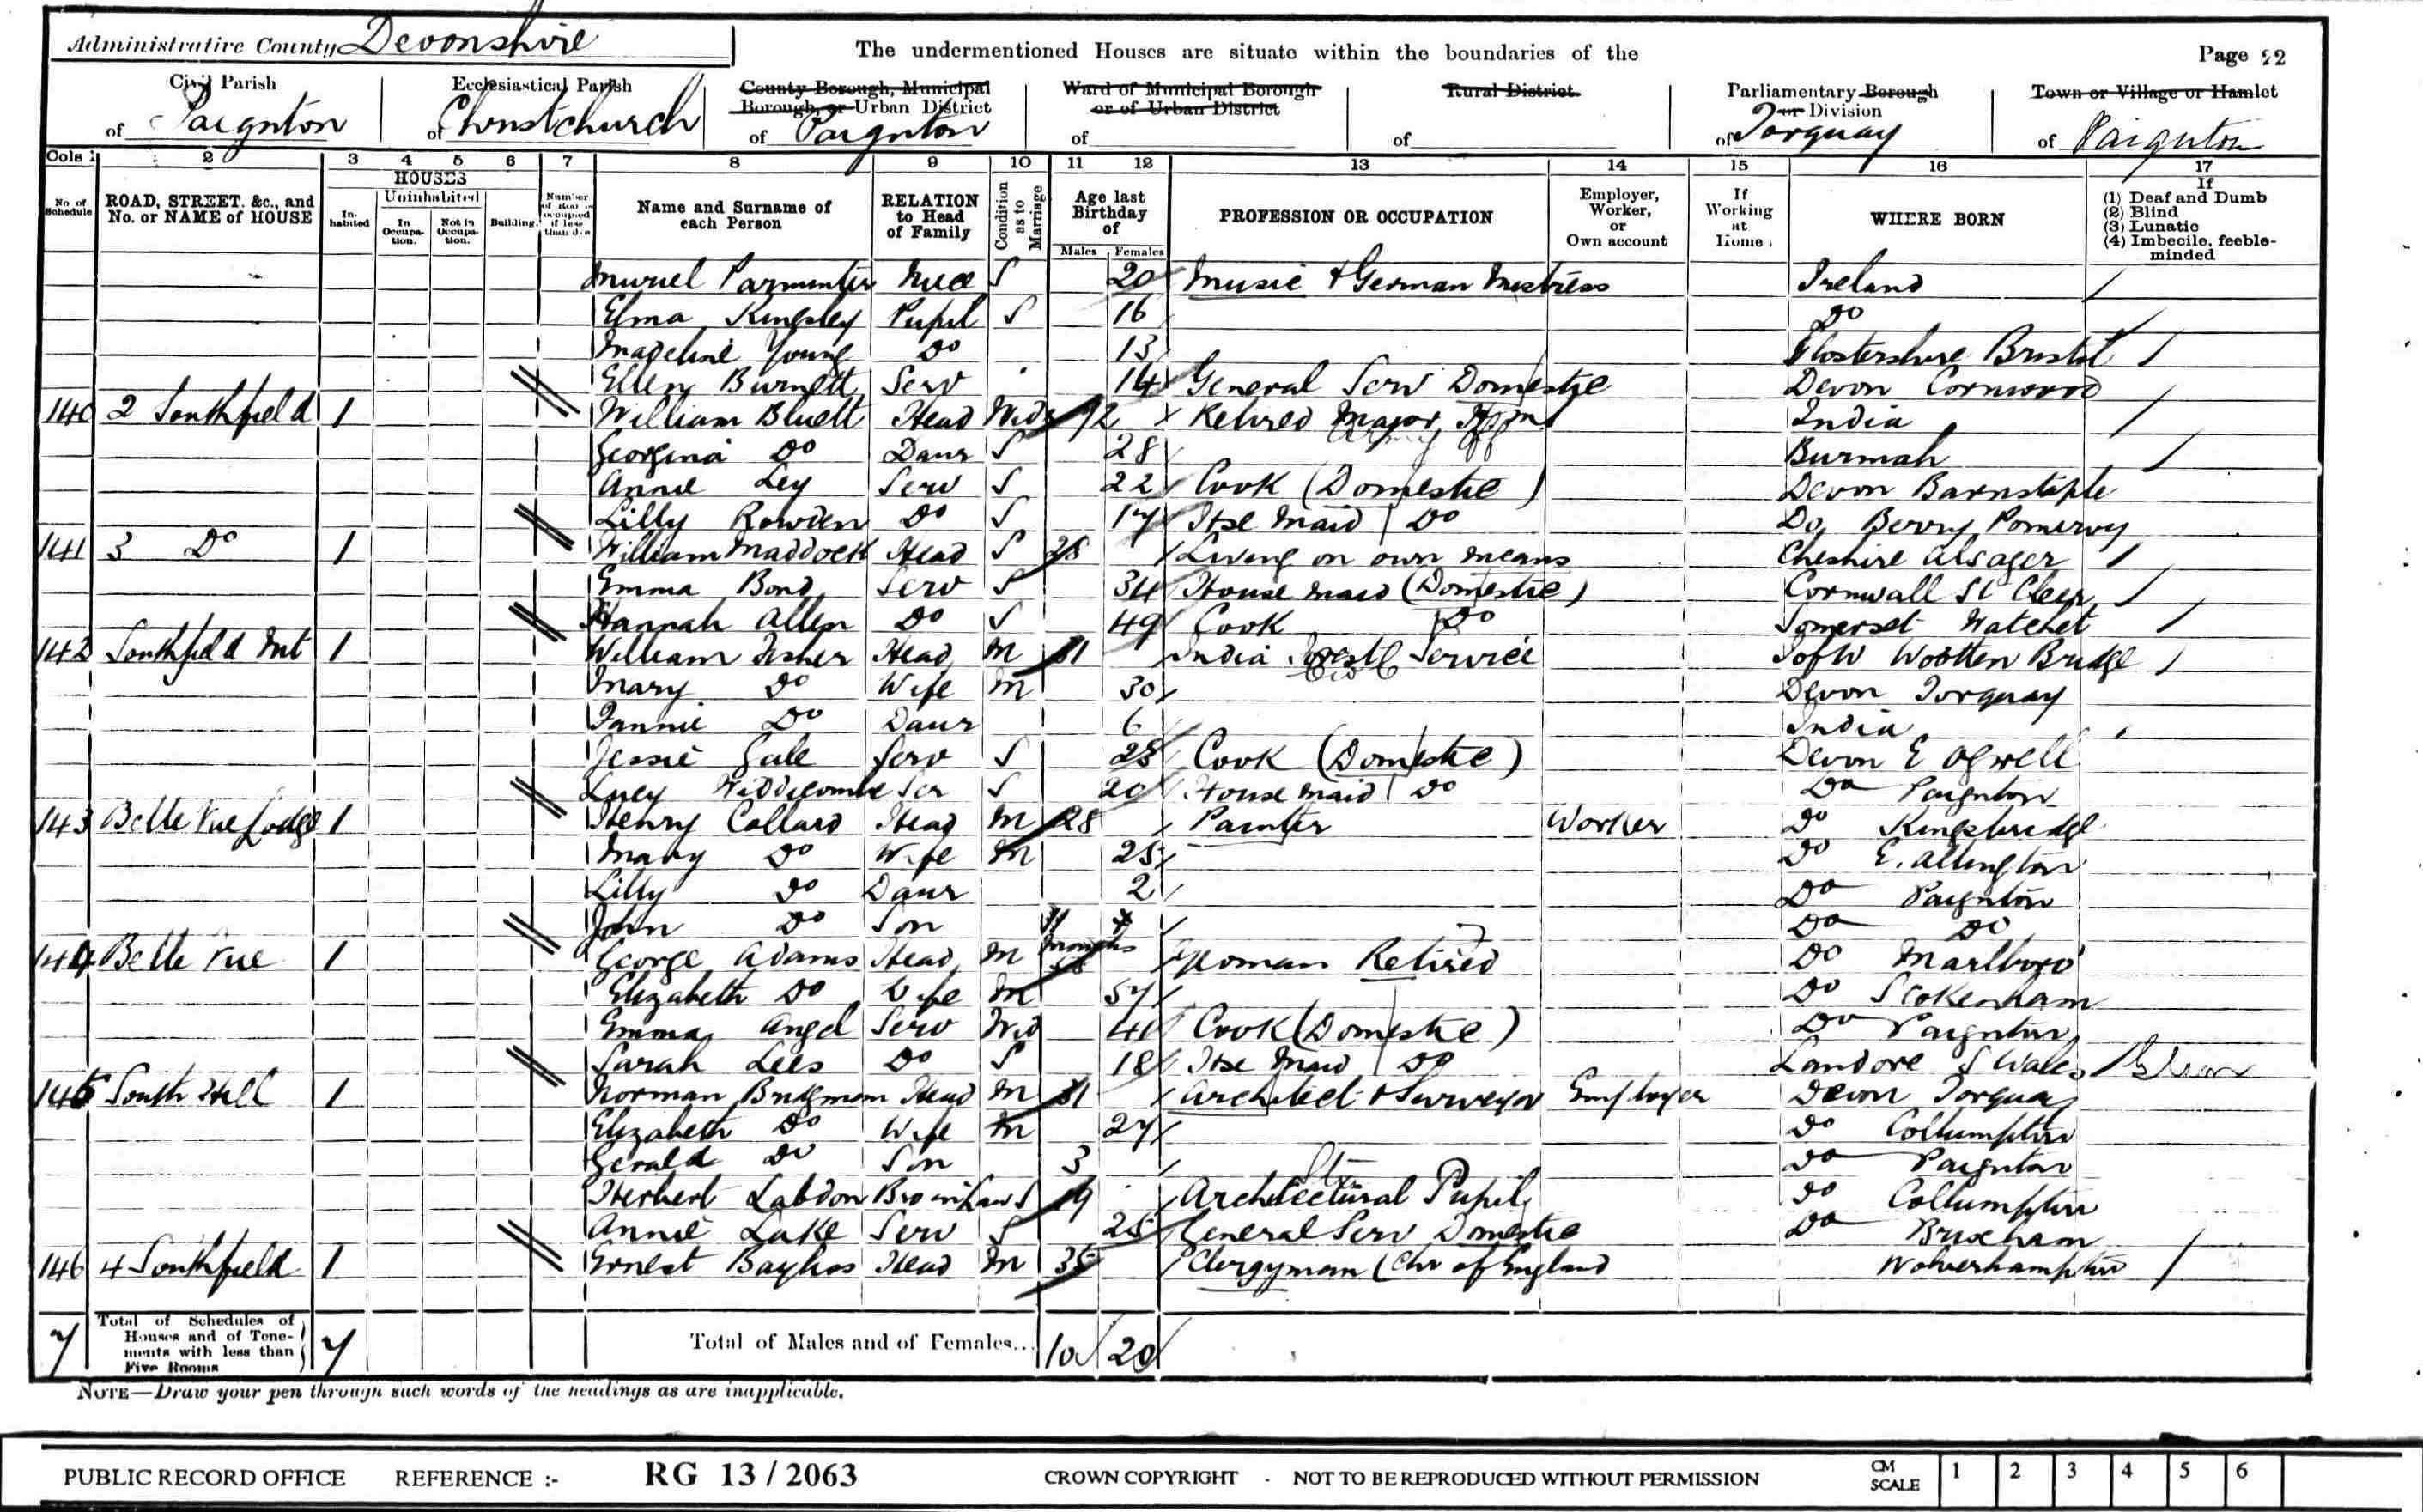 Administrative County Devonshire
The undermentioned Houses are situate within the boundaries of the
Page 22
Civil Parish of Paignton
Ecclesiastical Parish of Christchurch
County Borough, Municipal Borough, or Urban District of Paignton
Ward of Municipal Borough or of Urban District of
Rural District of
Parliamentary Borough or Division of Torquay
Town or Village or Hamlet of Paignton
Cols 1 2 3 4 5 6 7 8 9 10 11 12 13 14 15 16 17
No. of Schedule
ROAD, STREET, &c., and No. or NAME of HOUSE
HOUSES
Inhabited
Uninhabited
In Occupation.
Not in Occupation.
Building.
Number of Rooms occupied if less than five
Name and Surname of each Person
RELATION to Head of Family
Condition as to Marriage
Age last Birthday of
Males Females
PROFESSION OR OCCUPATION
Employer, Worker, or Own account
If Working at Home
WHERE BORN
If (1) Deaf and Dumb (2) Blind (3) Lunatic (4) Imbecile, feeble-minded
Muriel Parminter Niece S 20 Music & German Mistress Ireland
Elma Kingsley Pupil S 16 Do
Madeline Young Do 13 Glostershire Bristol
Ellen Burnett Serv 14 General Serv Domestic Devon Cornwood
140 2 Southfield 1 William Bluett Head Widr 72 Retired Major Army Off India
Georgina Do Daur S 28 Burmah
Annie Ley Serv S 22 Cook (Domestic) Devon Barnstaple
Lilly Rowden Do S 17 Hse Maid Do Do Berry Pomeroy
141 3 Do 1 William Maddock Head S 28 Living on own means Cheshire Alsager
Emma Bond Serv S 34 House Maid (Domestic) Cornwall St Cleer
Hannah Allen Do S 49 Cook Do Somerset Watchet
142 Southfield Mt 1 William Fisher Head M 31 India Forest Service Civil I of W Wootten Bridge
Mary Do Wife M 30 Devon Torquay
Fannie Do Daur 6 India
Jessie Gale Serv S 28 Cook (Domestic) Devon E Ogwell
Lucy Widdicombe Ser S 20 House Maid Do Do Paignton
143 Belle Vue Lodge 1 Henry Collard Head M 28 Painter Worker Do Kingsbridge
Mary Do Wife M 25 Do E. Allington
Lilly Do Daur 2 Do Paignton
John Do Son 11 months Do Do
144 Belle Vue 1 George Adams Head M Yeoman Retired Do Marlboro'
Elizabeth Do Wife M 57 Do Stokenham
Emma Angel Serv Wid 41 Cook (Domestic) Do Paignton
Sarah Lees Do S 18 Hse Maid Do Landore S Wales Glam
145 South Hill 1 Norman Bridgman Head M 31 Architect & Surveyor Employer Devon Torquay
Elizabeth Do Wife M 27 Do Collumpton
Gerald Do Son 3 Do Paignton
Herbert Labdon Bro in Law S 19 Architectural Pupil Do Collumpton
Annie Lake Serv S 25 General Serv Domestic Do Brixham
146 4 Southfield 1 Ernest Head M 35 Clergyman (Chr of England Wolverhampton
7 Total of Schedules of Houses and of Tenements with less than Five Rooms 7 Total of Males and of Females... 10 20
NOTE—Draw your pen through such words of the headings as are inapplicable.
PUBLIC RECORD OFFICE REFERENCE :- RG 13 / 2063 CROWN COPYRIGHT - NOT TO BE REPRODUCED WITHOUT PERMISSION CM SCALE 1 2 3 4 5 6